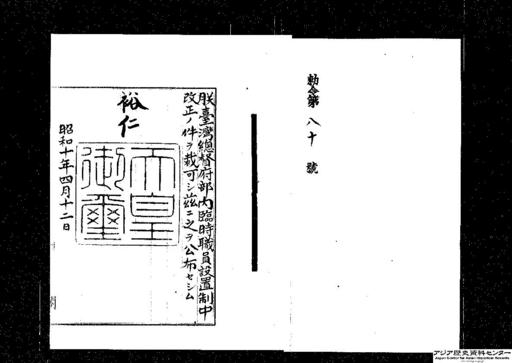 勅令第八十號
朕臺灣總督府部内臨時職員設置制中
改正ノ件ヲ裁可シ茲ニ之ヲ公布セシム
裕仁
天皇御璽
昭和十年四月十二日
アジア歴史資料センター
Japan Center for Asian Historical Records